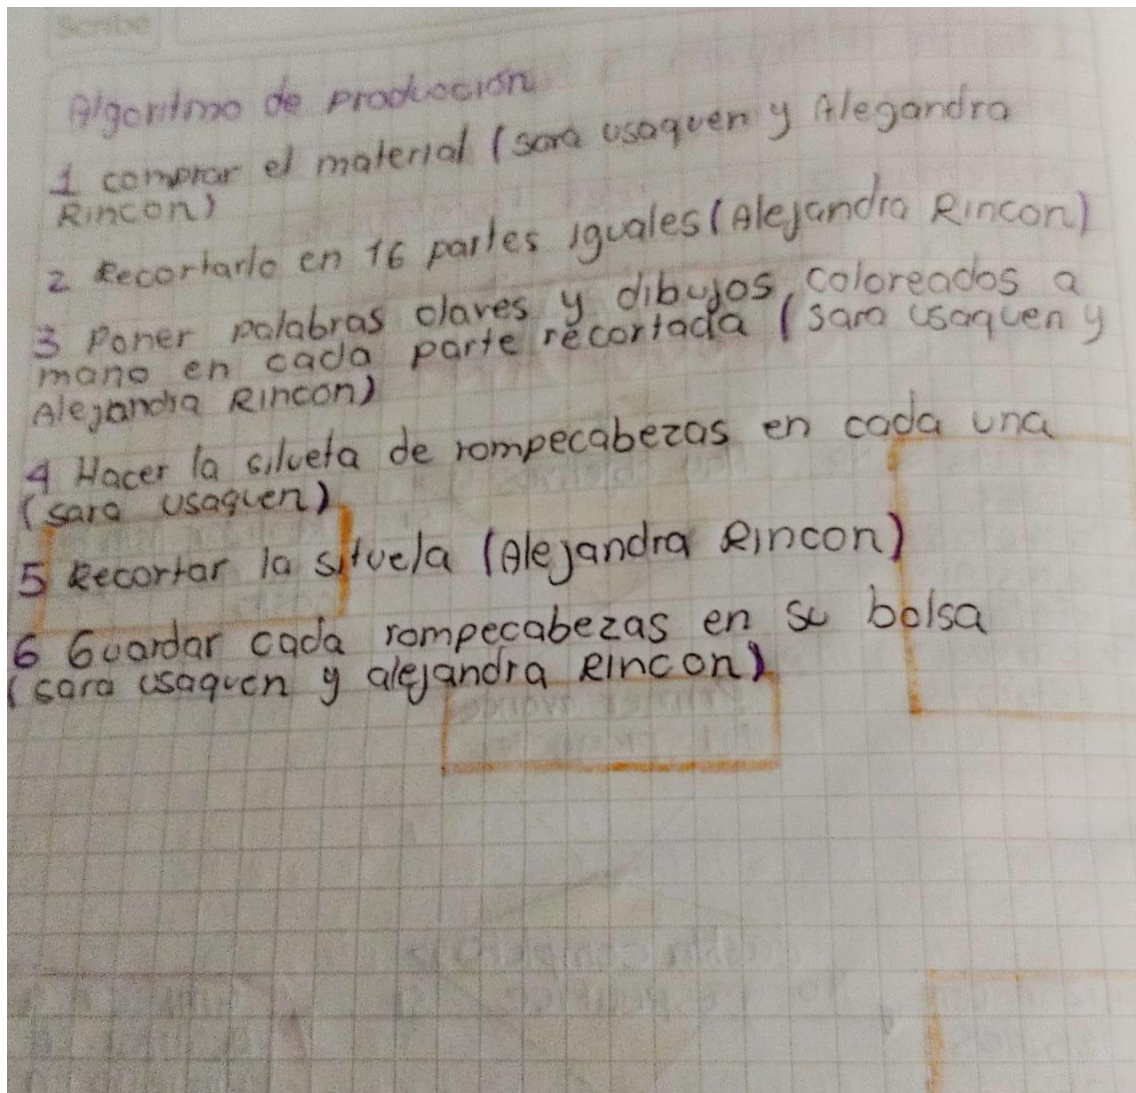 Scribe
Algoritmo de produccion
1 comprar el material (sara usaquen y Alegandra
Rincon)
2 Recortarlo en 16 partes iguales (Alejandra Rincon)
3 Poner palabras claves y dibujos, coloreados a
mano en cada parte recortada (sara usaquen y
Alejandra Rincon)
4 Hacer la silueta de rompecabezas en cada una
(sara usaquen)
5 Recortar la situela (Alejandra Rincon)
6 Guardar cada rompecabezas en su bolsa
(sara usaquen y alejandra Rincon)